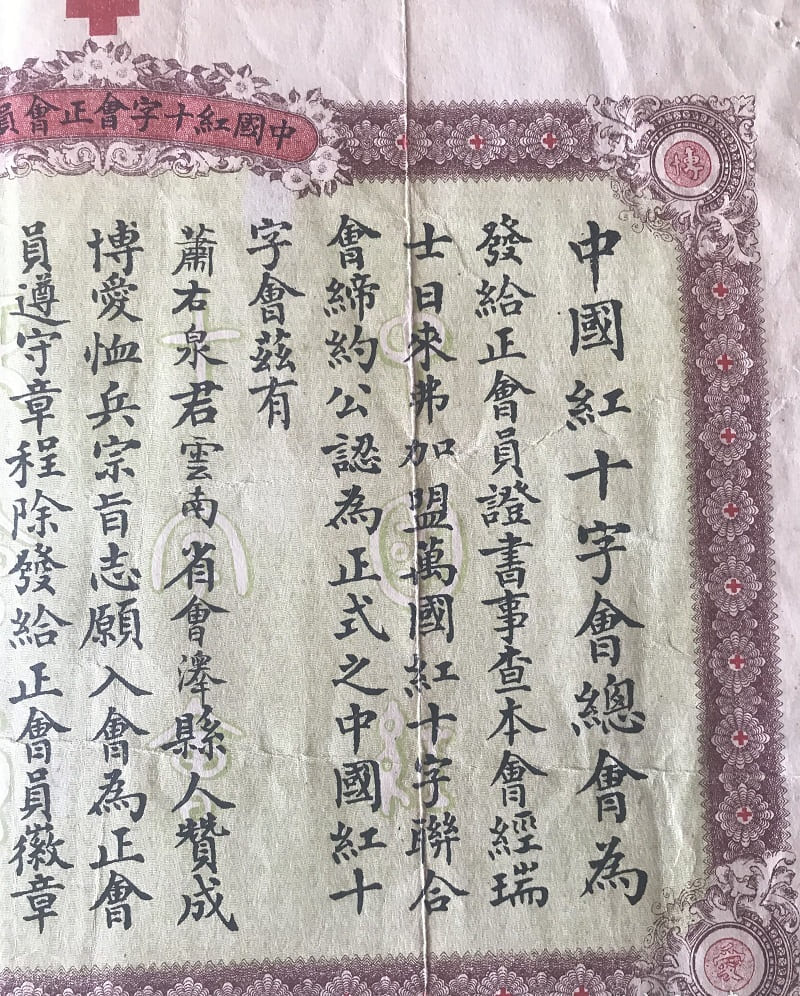 中國紅十字會正會員
博
中國紅十字會總會為
發給正會員證書事查本會經瑞
士日來弗加盟萬國紅十字聯合
會締約公認為正式之中國紅十
字會茲有
蕭右泉君雲南省會澤縣人贊成
博愛恤兵宗旨志願入會為正會
員遵守章程除發給正會員徽章